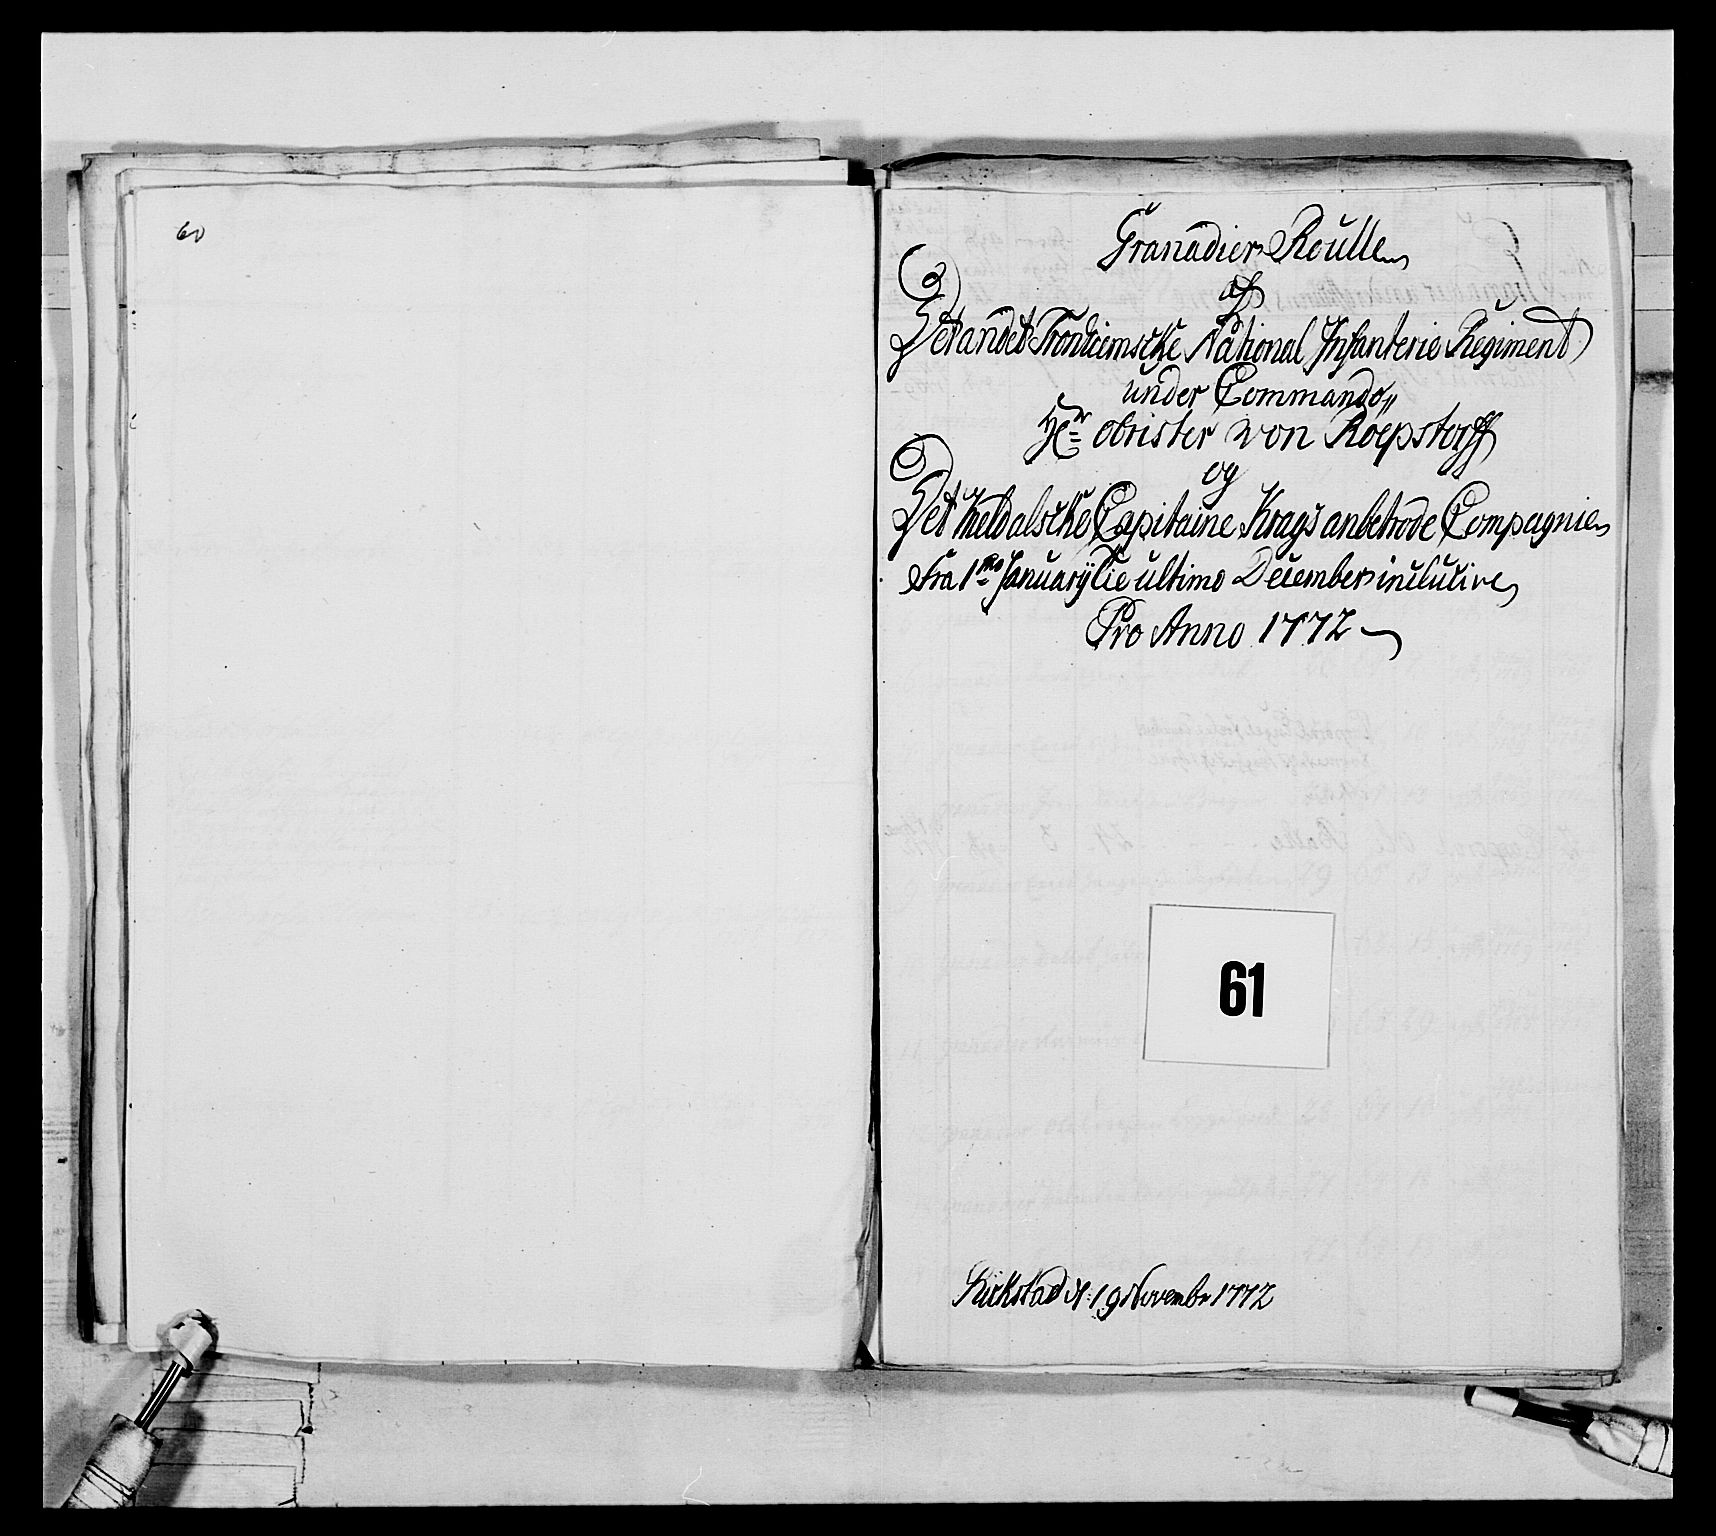 60
Granadier Roulle
af
Det andet Tronhiemscke National Infanterie Regiment
under Commando
Hr obrister von Roepstorff
og
Det Meldalscke Capitaine Krags anbetrode Compagnie
Fra 1mo January til ultimo December inclucive
Pro Anno 1772
61
Kirkstad d: 19 Novembr 1772